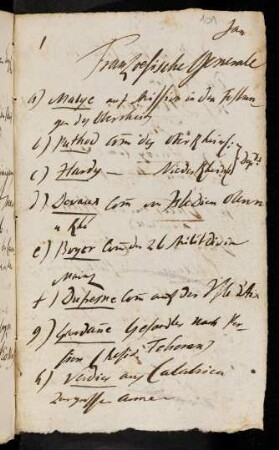 101
Jan
1
Französische Generale
a) Malye auf Mission in den Festun
gen des Oberrheins
b) Puthod Com des Oberrheins
c) Hardy — Niederrheins Dept
d) Devaux Com
u Rhé
e) Boyer Com der 26 Milit Divis
Mainz
f) Dufresne Com auf der Isle d'Aix
g) Gardane Gesandter nach Per
sien (Residz Teheran)
h) Verdier aus Calabrien
zur großen Armee